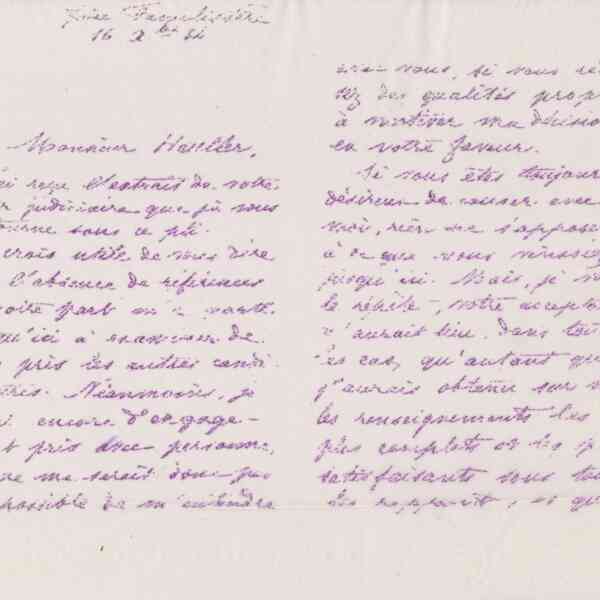 16 Xbre 84
Monsieur
reçu l'extrait de votre
r judiciaire que je vous
tourne sous ce pli.
crois utile de vous dire
l'absence de références
votre part m'a
qu'ici à examiner de
près les autres candi
Néanmoins, je
i encore d'engage-
t pris avec personne,
ne me serait donc pas
possible de m'entendre
avec vous, si vous
des qualités prop
à motiver ma décision
en votre faveur.
Si vous êtes toujours
désireux de causer avec
moi, rien ne s'oppose
à ce que vous veniez
jusqu'ici. Mais, je v
le répète, votre accept
n'aurait lieu, dans tou
les cas, qu'autant que
j'aurais obtenu sur v
les renseignements les
plus complets et les p
satisfaisants sous tou
les rapports, et qu